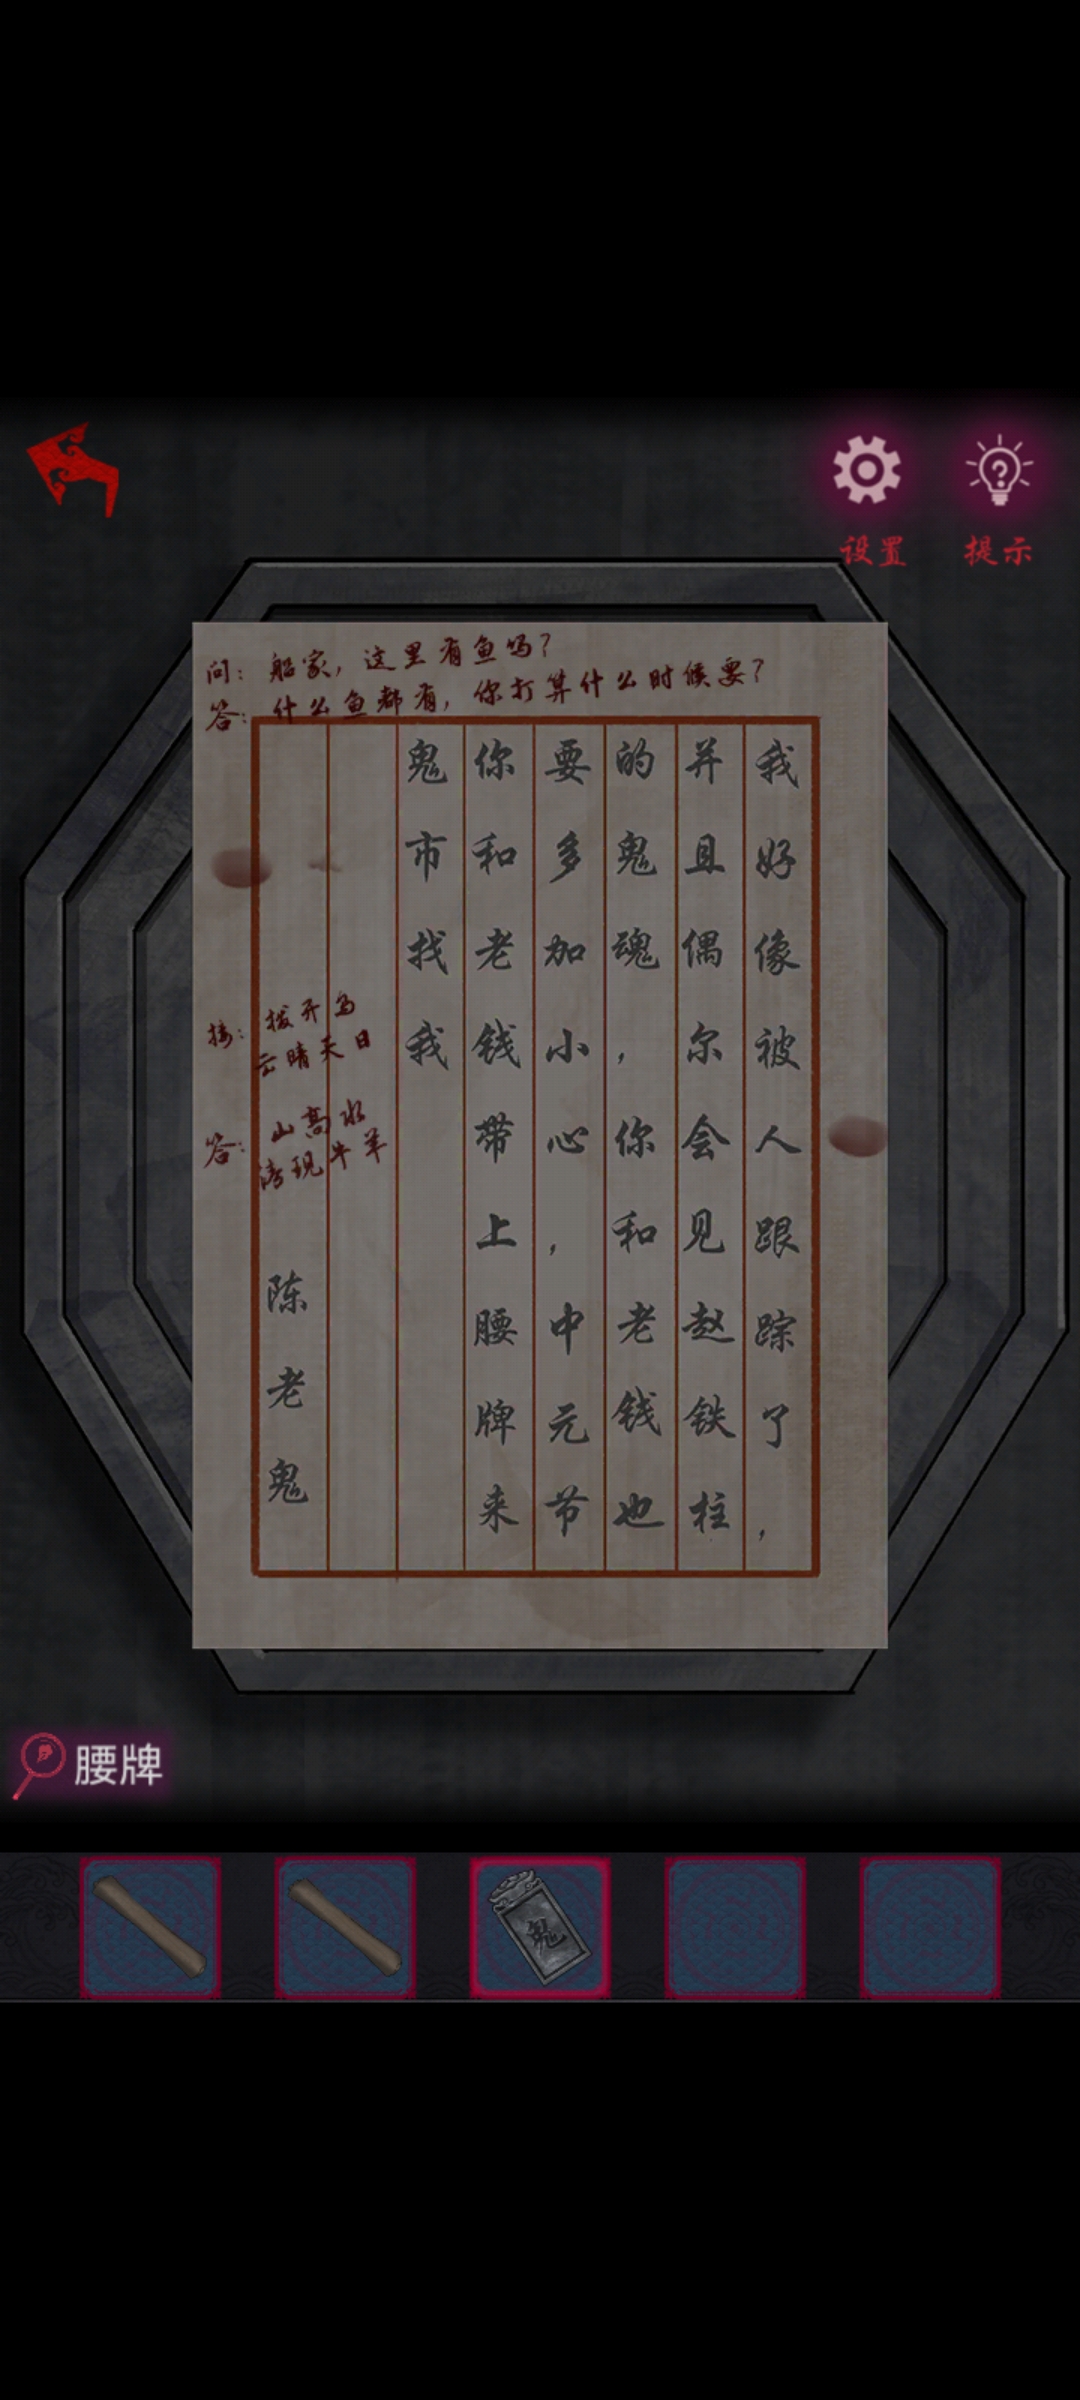 设置
提示
问：船家，这里有鱼吗？
答：什么鱼都有，你打算什么时候要？
我好像被人跟踪了，
并且偶尔会见赵铁柱
的鬼魂，你和老钱也
要多加小心，中元节
你和老钱带上腰牌来
鬼市找我
接：拨开乌
云晴天日
答：山高水
清现牛羊
陈老鬼
腰牌
鬼